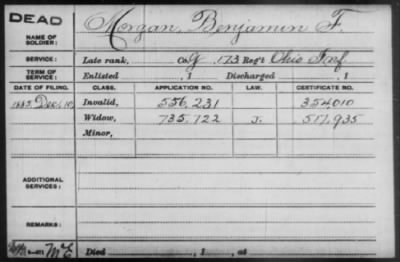 DEAD
NAME OF SOLDIER: Morgan, Benjamin F.
SERVICE: Late rank, Co. G, 173 Reg't Ohio Inf.
TERM OF SERVICE: Enlisted , 1 Discharged , 1
DATE OF FILING. CLASS. APPLICATION NO. LAW. CERTIFICATE NO.
1885, Dec. 10, Invalid, 556,231 354010
Widow, 735,722 J. 517,935
Minor,
ADDITIONAL SERVICES:
REMARKS:
Died , 1 , at